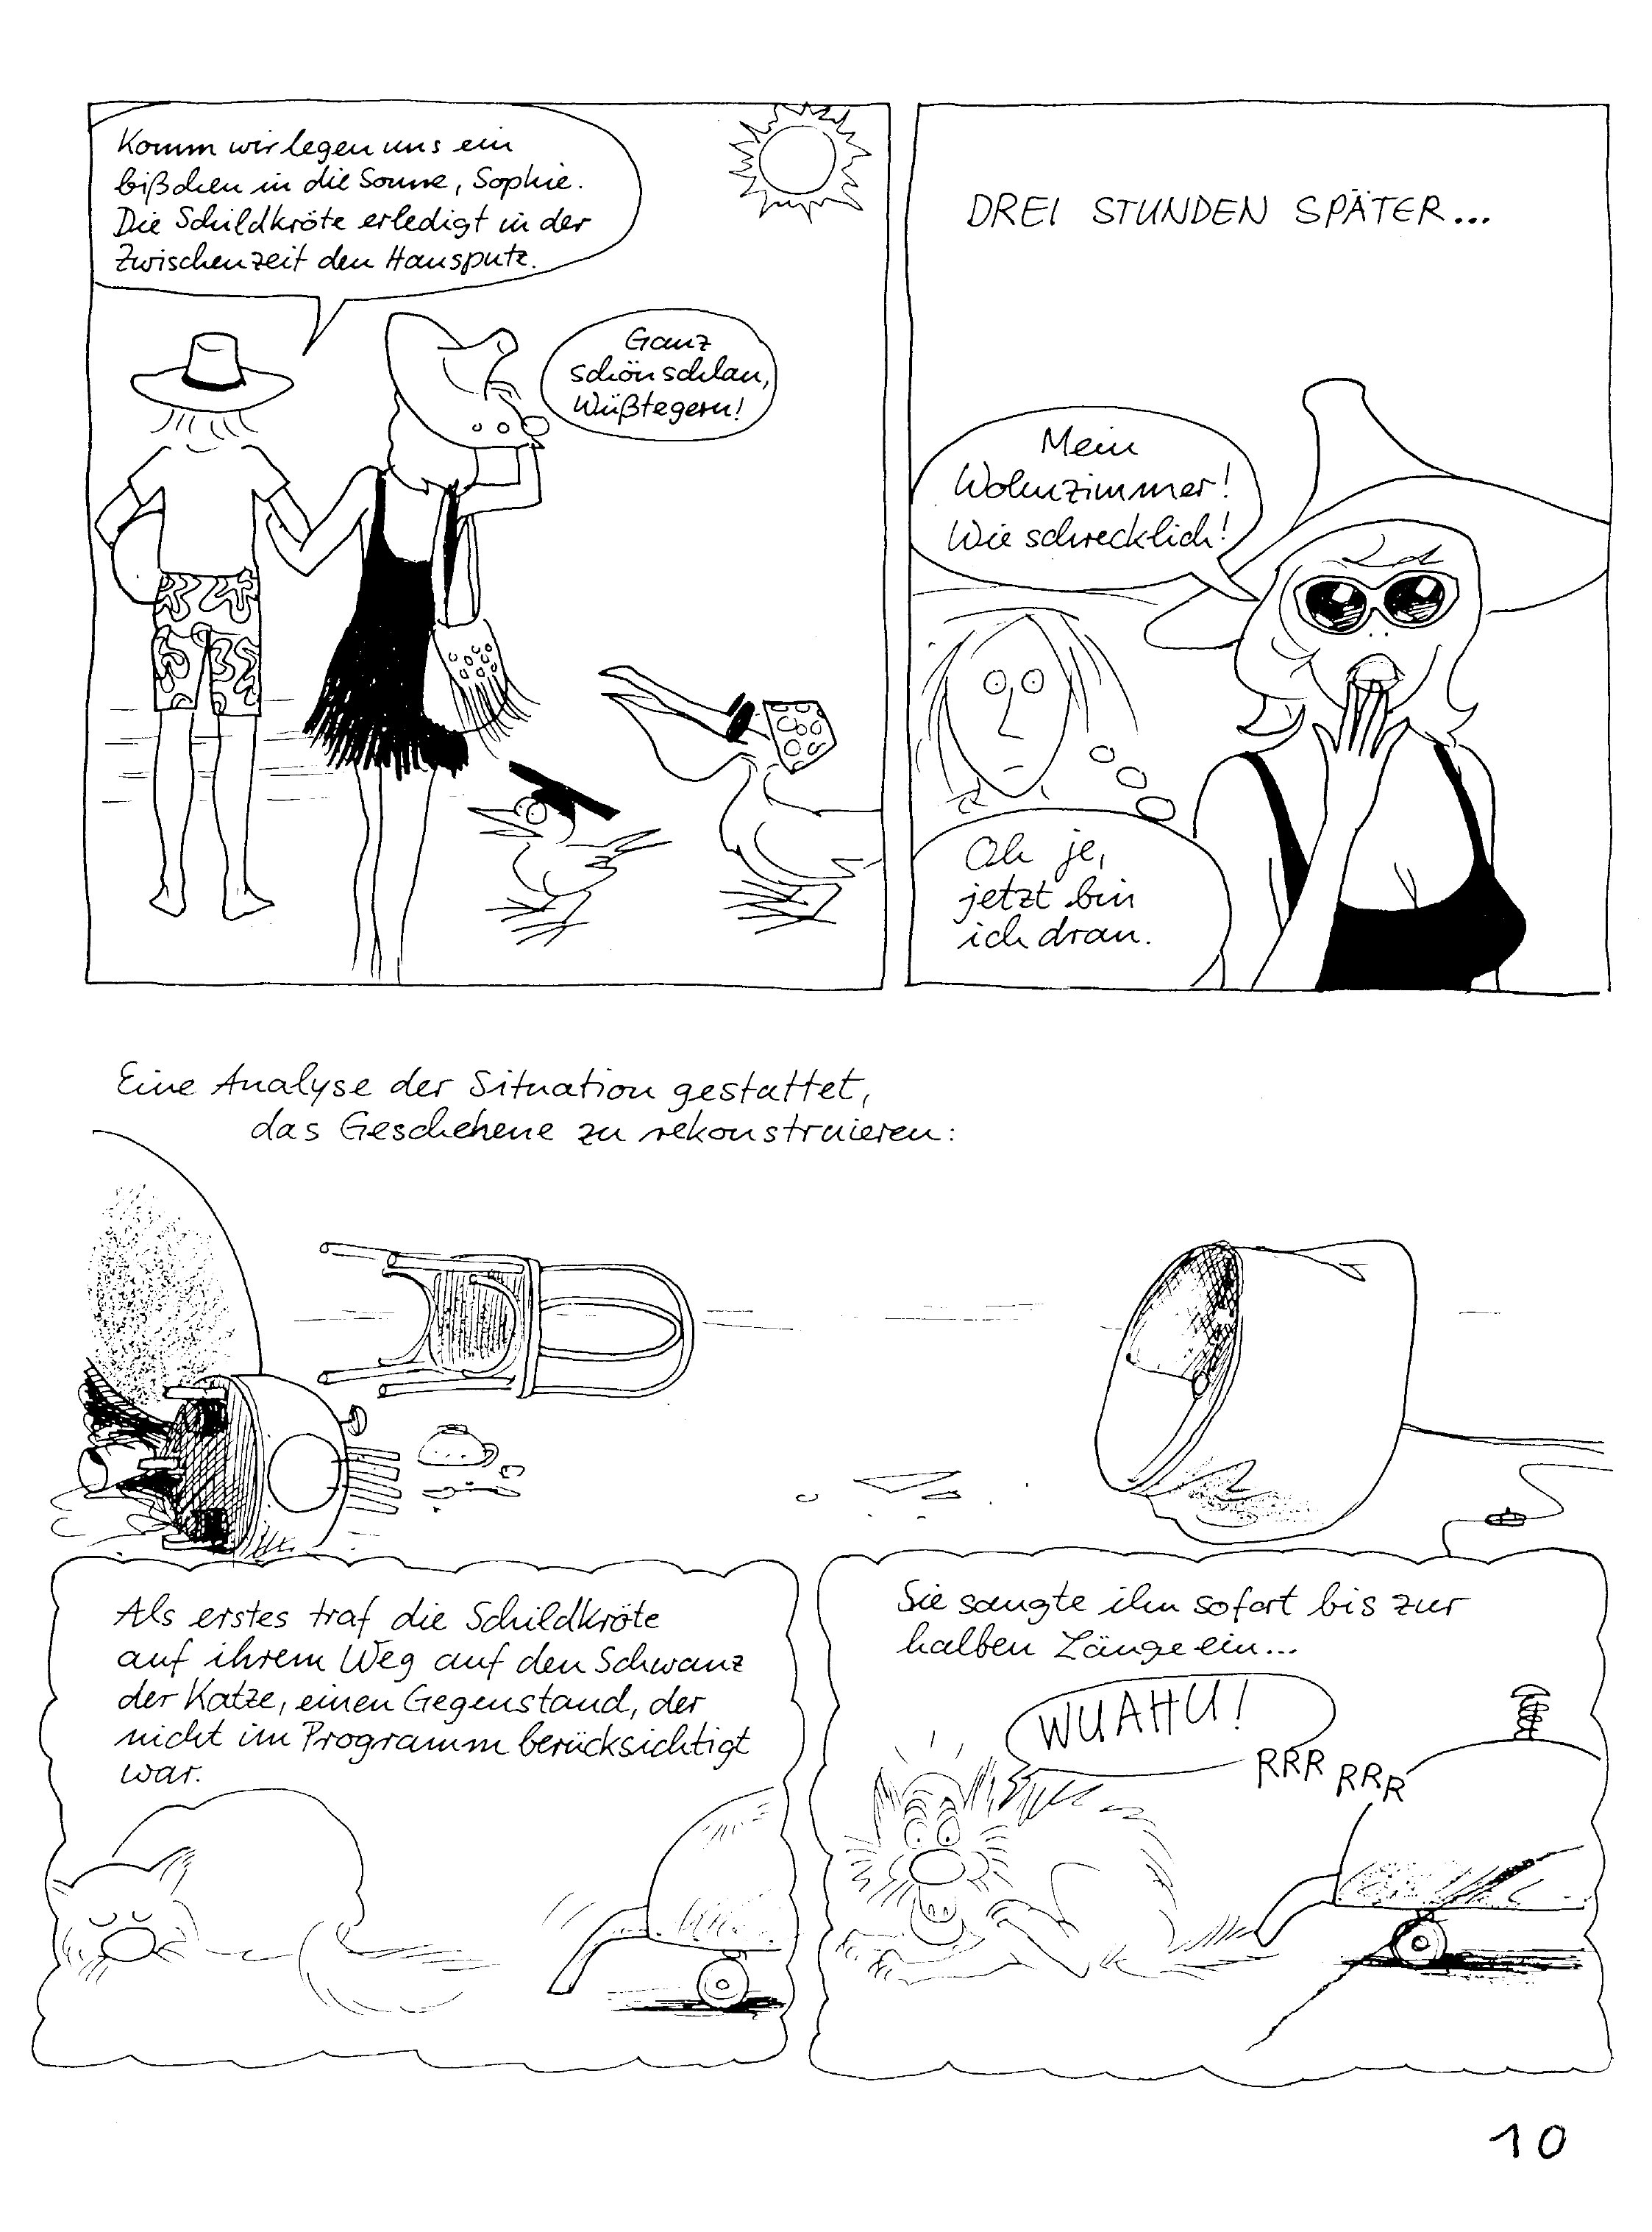 Komm wir legen uns ein
bißchen in die Sonne, Sophie.
Die Schildkröte erledigt in der
Zwischenzeit den Hausputz.
Ganz
schön schlau,
Wüßte gern!
DREI STUNDEN SPÄTER...
Mein
Wohnzimmer!
Wie schrecklich!
Oh je,
jetzt bin
ich dran.
Eine Analyse der Situation gestattet,
das Geschehene zu rekonstruieren:
Als erstes traf die Schildkröte
auf ihrem Weg auf den Schwanz
der Katze, einen Gegenstand, der
nicht im Programm berücksichtigt
war.
Sie saugte ihn sofort bis zur
halben Länge ein...
WUAHU!
RRR RRR
10